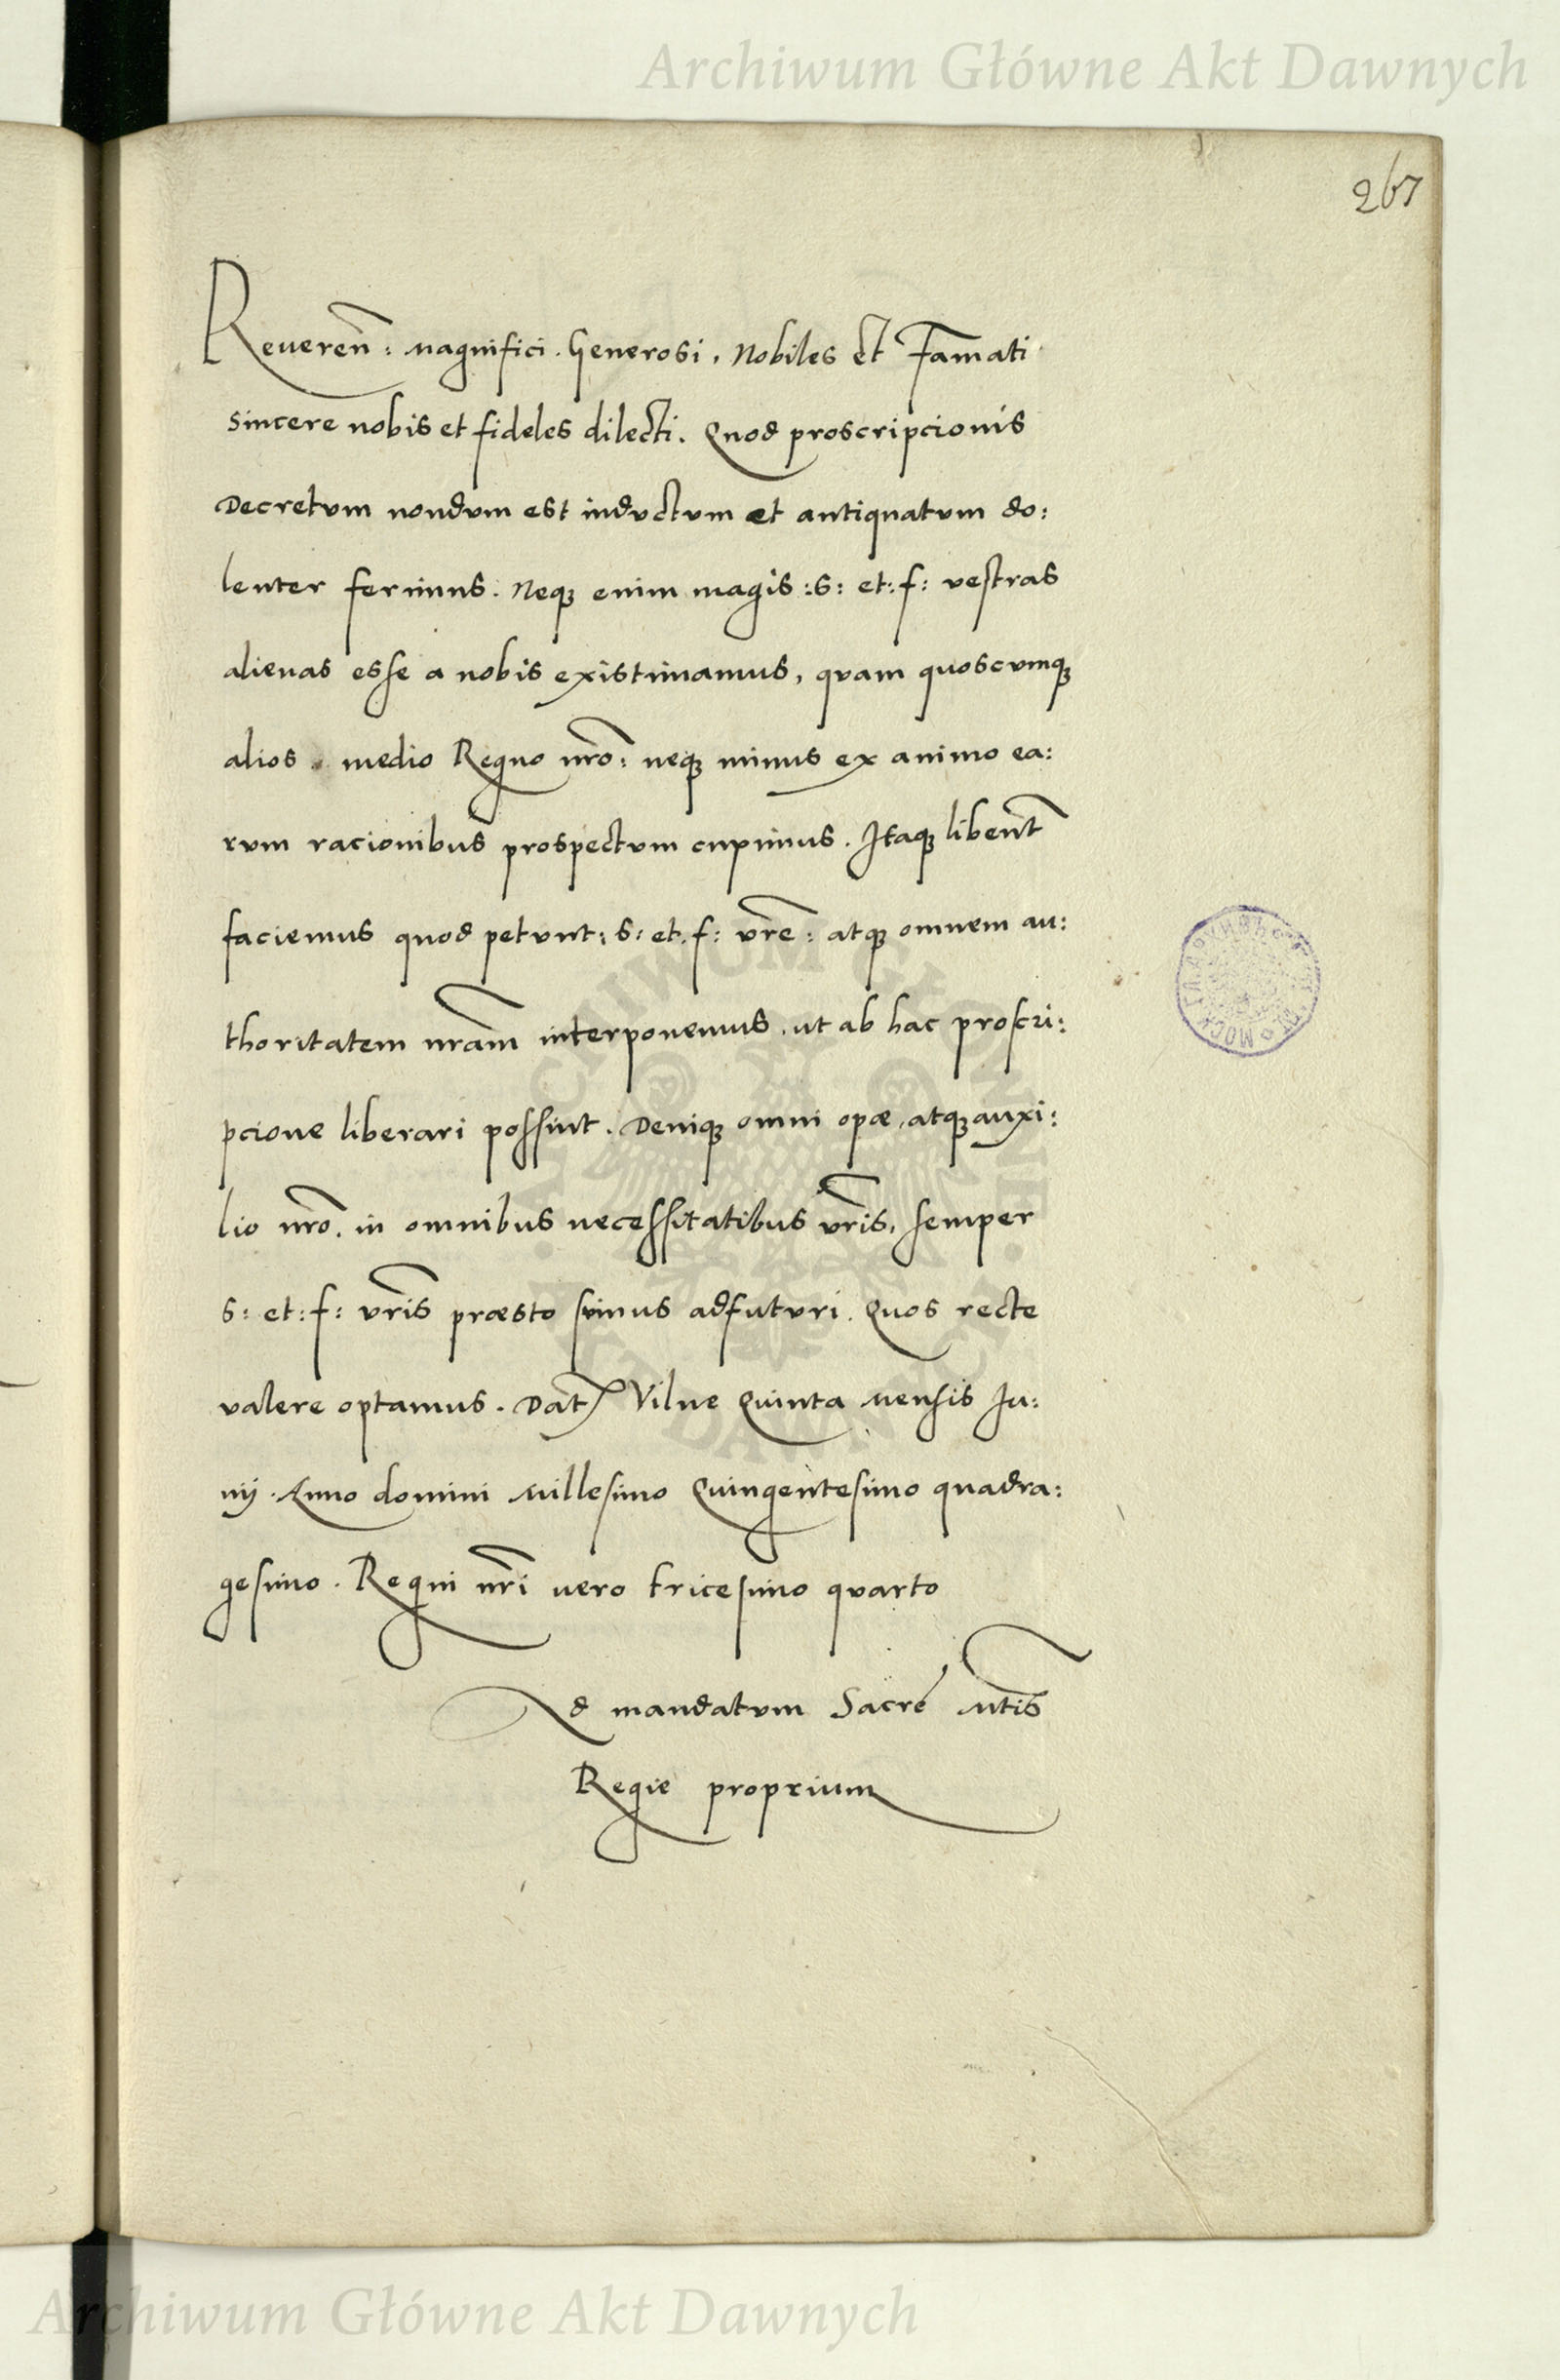 Archiwum Główne Akt Dawnych
267
Reueren̄: Magnifici. Generosi, Nobiles et Famati
sincere nobis et fideles dilecti. Quod proscripcionis
Decretvm nondvm est indvctvm et antiquatvm do:
lenter ferimus. Neqȝ enim magis :S: et: f: vestras
alienas esse a nobis existimamus, qvam quoscvmqȝ
alios medio Regno nr̄o: neqȝ minus ex animo ea:
rvm racionibus prospectvm cupimus. Itaqȝ libent̄
faciemus quod petvnt: S: et. f: vr̄e: atqȝ omnem au:
thoritatem nr̄am interponemus. ut ab hac proscri:
pcione liberari possint. Deniqȝ omni opæ, atqȝ auxi:
lio nr̄o. in omnibus necessitatibus vr̄is, semper
S: et: f: vr̄is præsto svmus adfutvri. Quos recte
valere optamus. Dat̄ Vilne Quinta Mensis Iu:
nij. Anno domini Millesimo Quingentesimo quadra:
gesimo. Regni nr̄i vero tricesimo qvarto
Ad mandatvm Sacre Mt̄is
Regie proprium
Archiwum Główne Akt Dawnych